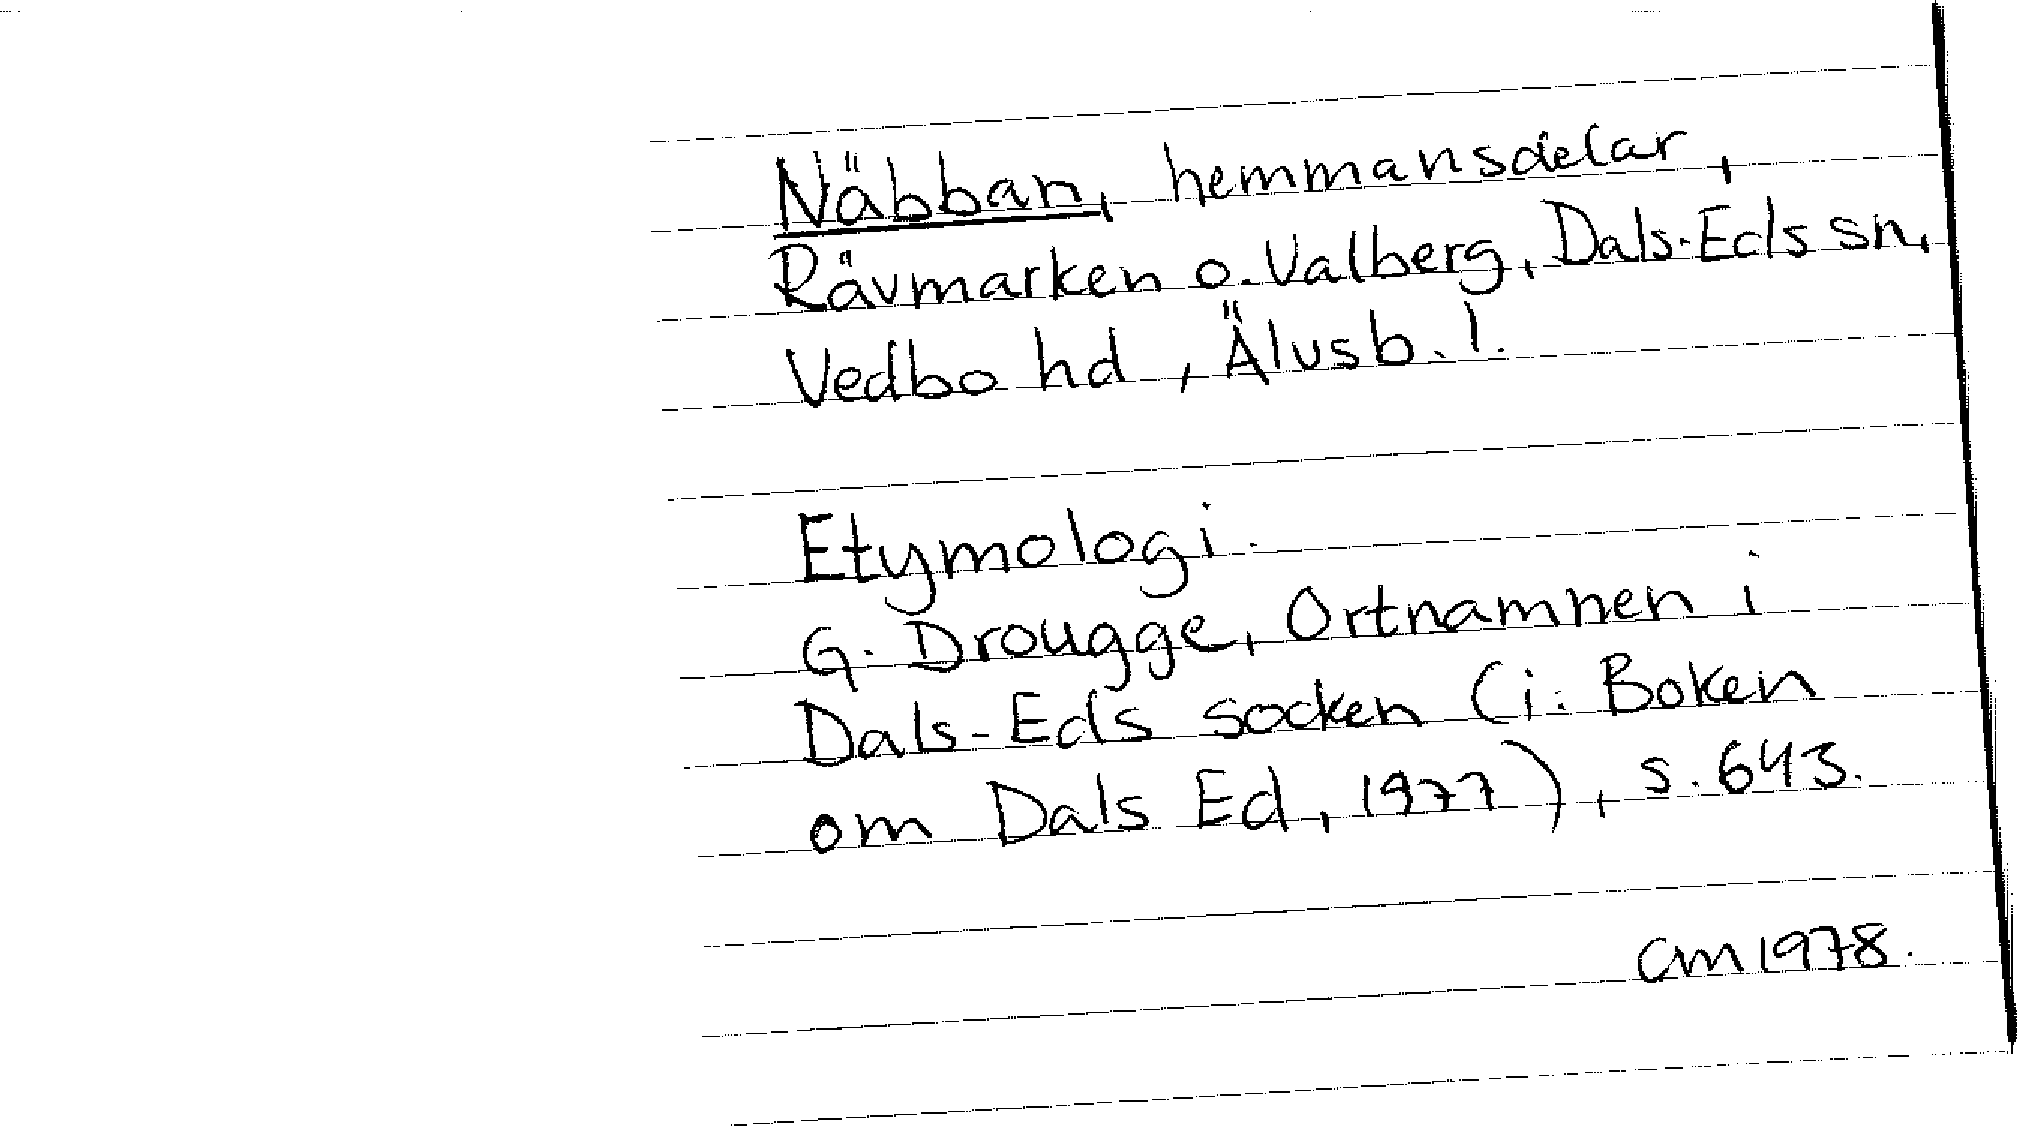 Näbban, hemmansdelar,
Rävmarken o. Valberg, Dals-Eds sn,
Vedbo hd, Älvsb. l.
Etymologi.
G. Drougge, Ortnamnen i
Dals-Eds socken (i: Boken
om Dals Ed, 1977), s. 643.
CM 1978.